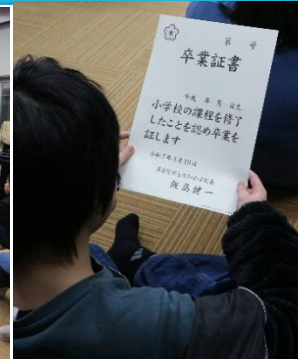 第 号
卒業証書
平成 年 月 日生
小学校の課程を修了
したことを認め卒業を
証します
令和7年3月19日
飯島健一